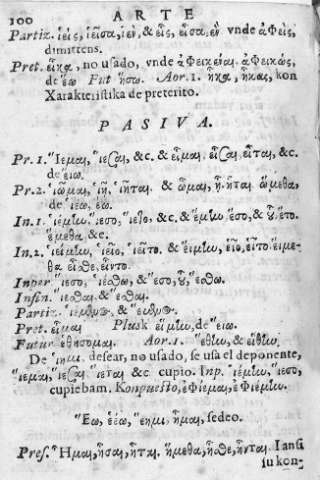 100 ARTE
Partiz. ἱείς, ἱεῖσα, ἱέν, & εἷς, εἷσα, ἕν vnde ἀφεὶς,
dimittens.
Pret. εἷκα, no usado, vnde ἀφεικέναι. ἀφεικώς,
de ἕω Fut ἥσω. Aor. 1. ἧκα, ἧκας, kon
Xarakteristika de preterito.
PASIVA.
Pr. 1. Ἵεμαι, ἵεσαι, &c. & εἷμαι. εἷσαι, εἷται, &c.
de ἕιω.
Pr. 2. &c. & ὧμαι, ᾗ, ἧται. ὥμεθα,
de ἱέω, ἕω.
In. 1. ἱέμην, ἵεσο, ἵετο, &c. & ἕμην ἕσο, & οὗ, ἕτο.
ἕμεθα &c.
In. 2. ἱείμην, ἱεῖο, ἱεῖτο. & εἵμην, εἷο, εἷτο εἵμε-
θα εἷσθε, εἷντο.
Inper ἵεσο, ἱέσθω, & ἕσο, οὗ, ἕσθω.
Infin. ἵεσθαι & ἕσθαι.
Partiz. ἱέμενος & ἕμενος.
Pret. εἷμαι Plusk εἵμην, de ἕιω.
Futur ἑθήσομαι. Aor. 1. ἕθην, & εἵθην.
De ἵημι. desear, no usado, se usa el deponente,
ἵεμαι, ἵεσαι ἵεται &c cupio. Inp. ἱέμην, ἵεσο,
cupiebam. Konpuesto, ἐφίεμαι, ἐφιέμην.
Ἕω, ἑέω, ἕημι, ἧμαι, sedeo.
Pres. Ἧμαι, ἧσαι, ἧται. ἥμεθα, ἧσθε, ἧνται. I ansi
su kon-